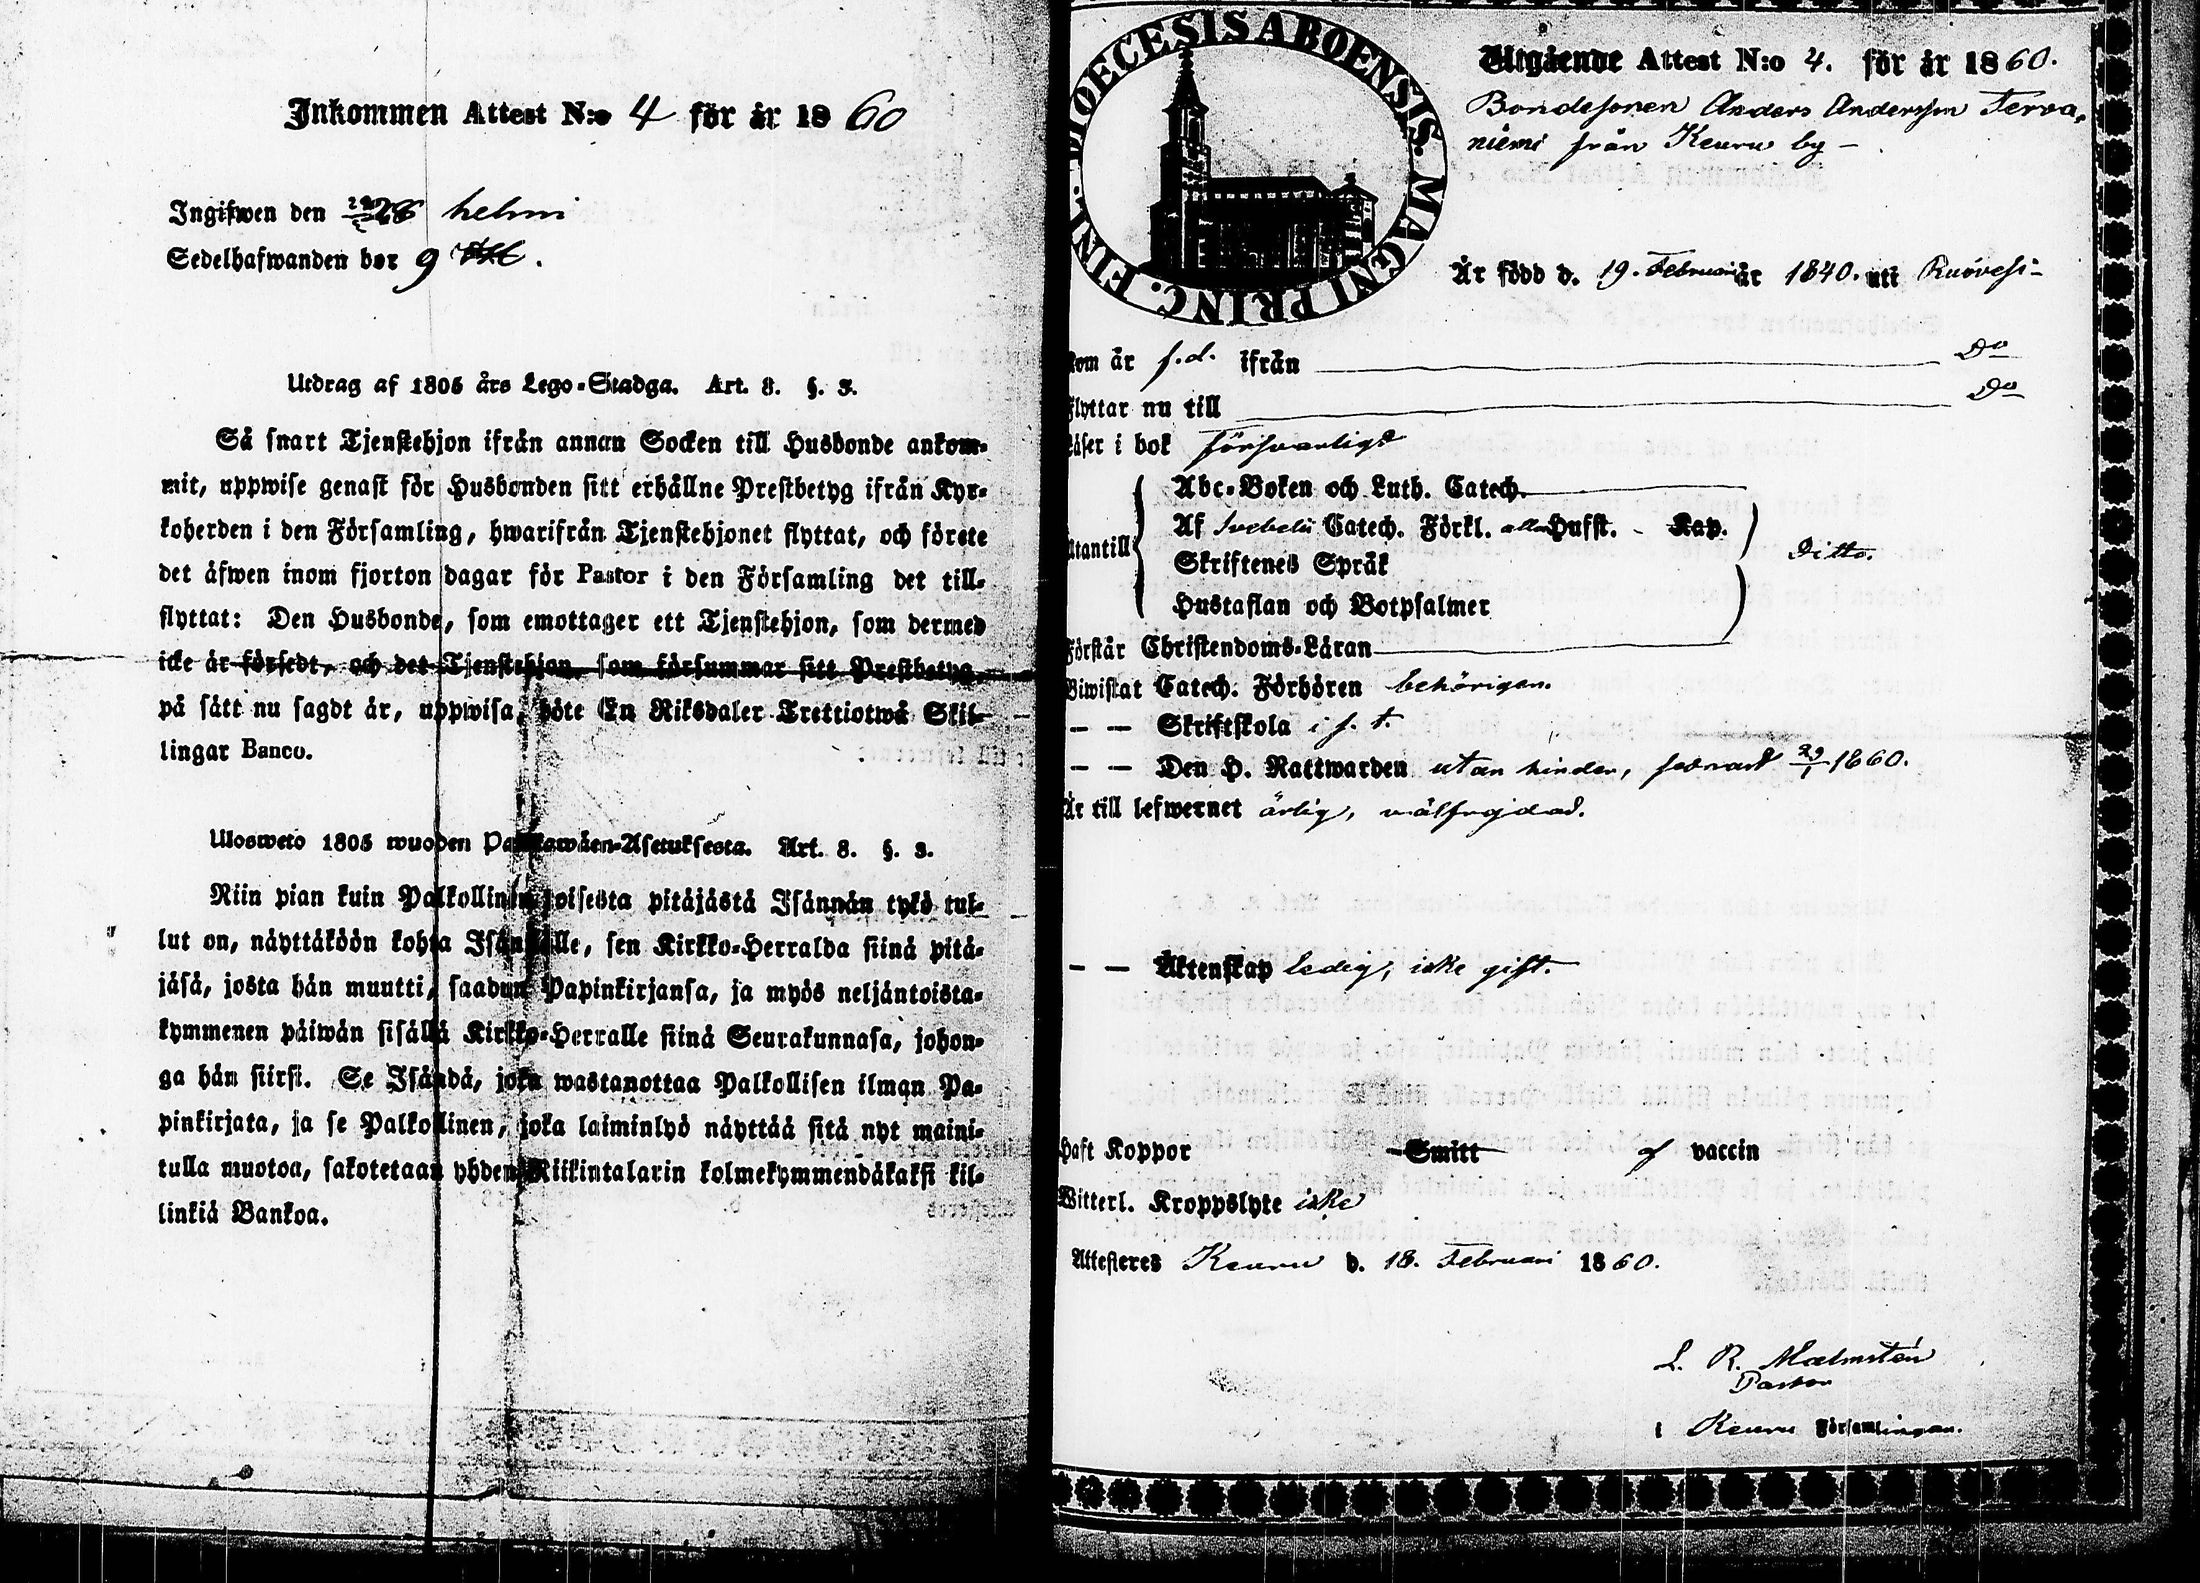 Inkommen Attest N:o 4 för år 1860
Ingifwen den 28 helmi
Sedelhafwanden bor 9
Utdrag af 1805 års Lego-Stadga. Art. 8. §. 3.
Så snart Tjenstehjon ifrån annan Socken till Husbonde ankom-
mit, uppwise genast för Husbonden sitt erhållne Prestbetyg ifrån Kyr-
koherden i den Församling, hwarifrån Tjenstehjonet flyttat, och förete
det äfwen inom fjorton dagar för Pastor i den Församling det till-
flyttat: Den Husbonde, som emottager ett Tjenstehjon, som dermed
icke är försedt, och det Tjenstehjon, som försummar sitt Prestbetyg,
på sätt nu sagdt är, uppwisa, böte En Riksdaler Trettiotwå Skil-
lingar Banco.
Ulosweto 1805 wuoden Palkkawäen-Asetuksesta. Art. 8. §. 3.
Niin pian kuin Palkollinen toisesta pitäjästä Isännän tykö tul-
lut on, näyttäköön kohta Isännälle, sen Kirkko-Herralda siinä pitä-
jäsä, josta hän muutti, saadun Papinkirjansa, ja myös neljäntoista-
kymmenen päiwän sisällä Kirkko-Herralle siinä Seurakunnasa, johon-
ga hän siirsi. Se Isändä, joka wastanottaa Palkollisen ilman Pa-
pinkirjata, ja se Palkollinen, joka laiminlyö näyttää sitä nyt maini-
tulla muotoa, sakotetaan yhden Riikintalarin kolmekymmendäkaksi kil-
linkiä Bankoa.
DIOECESIS ABOENSIS. MAGNI PRINC. FINL.
Utgående Attest N:o 4. för år 1860.
Bondesonen Anders Andersson Terva-
niemi från Keuru by –
Är född d. 19. Februari år 1840. uti Ruovesi –
kom år f.d. ifrån Do
Flyttar nu till Do
Läser i bok försvarligt
Abc-Boken och Luth. Catech.
Utantill Af Svebelii Catech. Förkl. alla Hufst. - Kap. Ditto.
Skriftenes Språk
Hustaflan och Botpsalmer
Förstår Christendoms-Läran
Biwistat Catech. Förhören behörigen.
— — Skriftskola i s. t.
— — Den H. Nattwarden utan hinder, senast 29/1 1860.
Är till lefwernet ärlig, välfrejdad.
— — Äktenskap ledig, icke gift.
Haft Koppor Smitt af vaccin
Witterl. Kroppslyte icke
Attesteres Keuru d. 18. Februari 1860.
L. R. Malmstén
Pastor
i Keuru Församlingan.